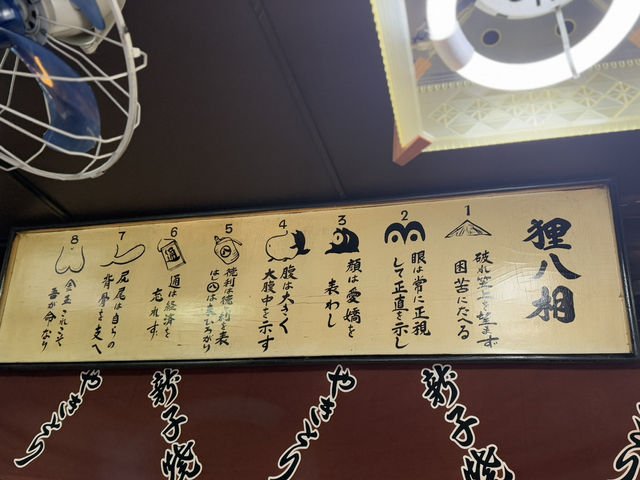 狸八相
1
破れ笠を望まず
困苦にたへる
2
眼は常に正視
して正直を示し
3
顔は愛嬌を
表わし
4
腹は大きく
大腹中を示す
5
徳利は徳利を表
6
通は経済を
忘れず
7
尻尾は自らの
背骨から支へ
8
金玉これこそ
吾が命なり
やきとり
新子焼
やきとり
新子焼